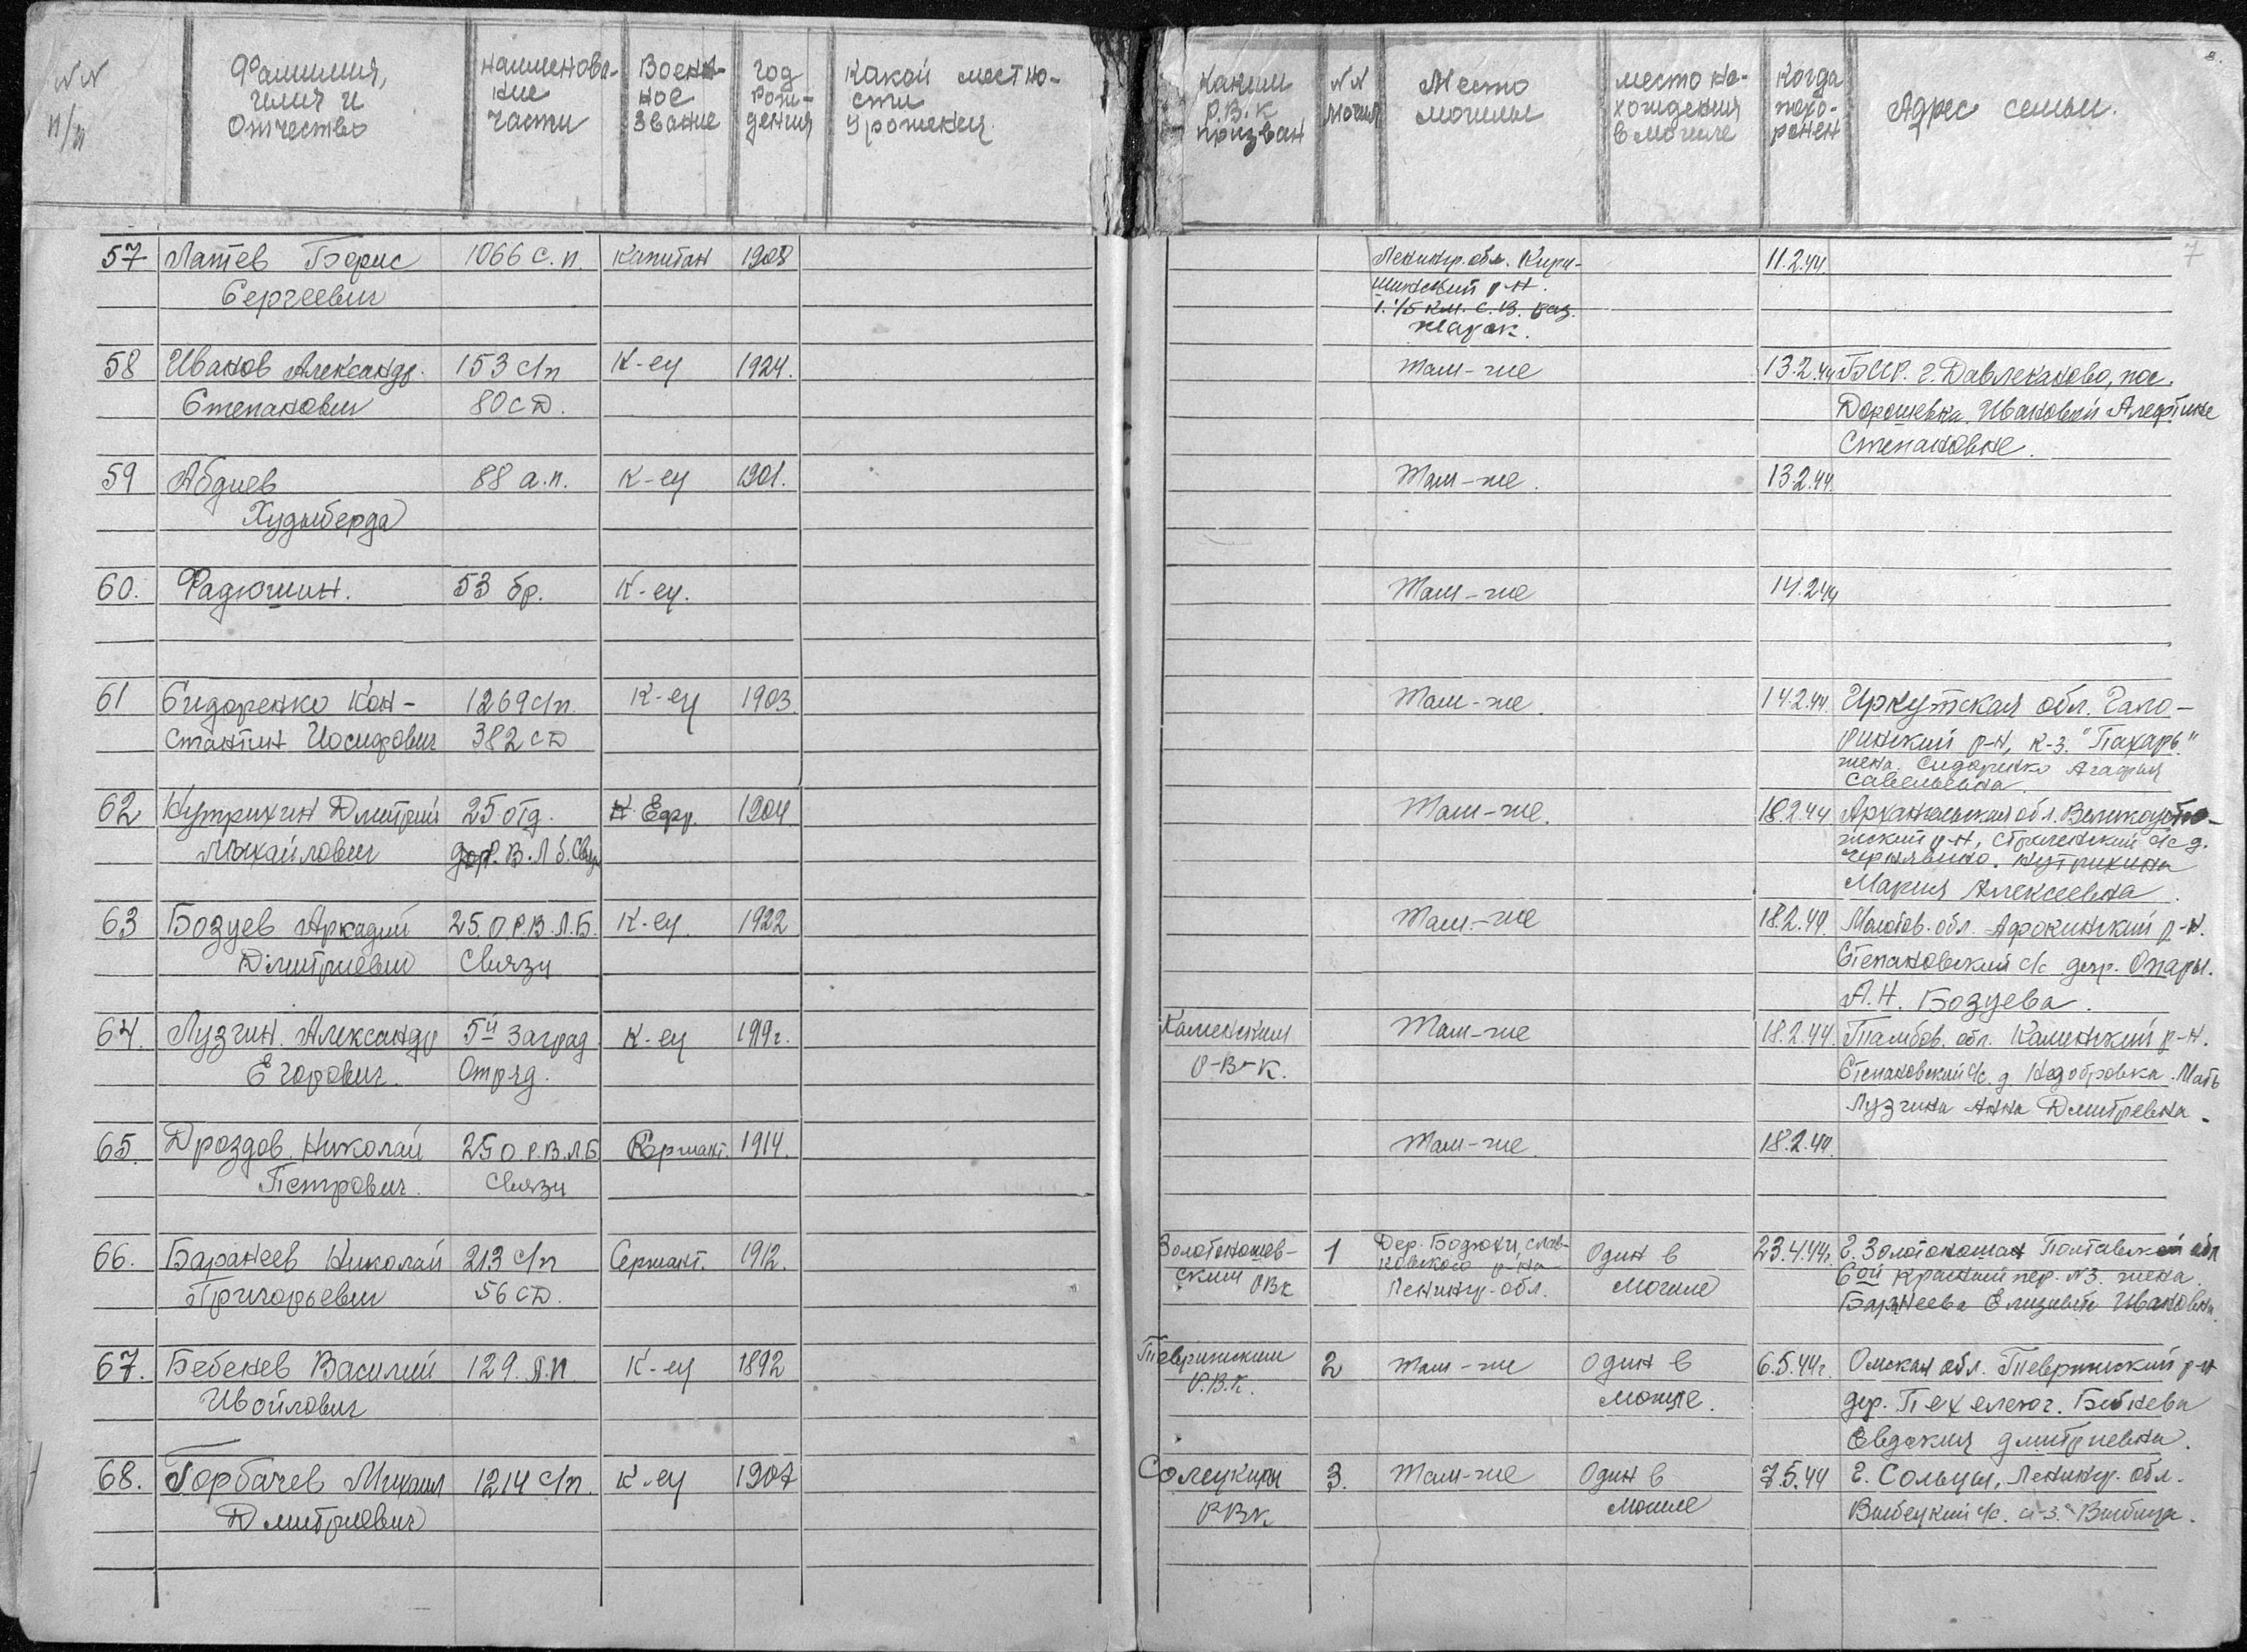 NN п/п
Фамилия, имя и Отчество
Наименование части
Военное звание
год рождения
какой местности урожениц
Каким Р.В.К призван
NN могил
Место могилы
место нахождения в могиле
Когда похоронен
Адрес семьи.
7
57 Латев Борис 1066 с.п. Капитан 1908 Ленингр. обл. Кири- 11.2.44
Сергеевич шинский р-н.
1.1/5 км. С.В. раз.
жарок.
58 Иванов Александр. 153 с/п К-ец 1924. Там-же 13.2.44 БССР. г. Давлеканово, пос.
Степанович 80 СД. Дорошевка. Ивановой Алефтине
Степановне.
59 Абдиев 88 а.п. К-ец 1901. Там-же. 13.2.44.
Худыберда
60. Фадюшин. 53 бр. К-ец. Там-же 14.2.44
61 Сидоренко Кон- 1269 с/п. К-ец 1903. Там-же. 14.2.44. Иркутская обл.
стантин Иосифович 382 СД р-н, к-з. "Пахарь"
жена. Сидоренко Агафья
Савельевна.
62 Кутрихин Дмитрий 25 отд. К. Ефр. 1904. Там-же. 18.2.44 Архангельская обл. Великоустю-
Михайлович В.Л.б. Связи жский р-н, с/с д.
Чернявино. Кутрихина
Мария Алексеевна.
63 Бозуев Аркадий 25.О.Р.В.Л.Б. К-ец. 1922 Там-же 18.2.44. Молотов. обл. р-н.
Дмитриевич Связи Степановский с/с дер. Опары.
А.Н. Бозуева.
64. Лузгин. Александр 5й Заград К-ец 1919г. Каменским Там-же 18.2.44. Тамбов. обл. Каменский р-н.
Егорович. Отряд. Р-В-К. Степановский с/с. д Недобровка. Мать
Лузгина Анна Дмитревна.
65. Дроздов. Николай 25 О.Р.В.Л.Б Сержант. 1914. Там-же. 18.2.44.
Петрович. Связи
66. Баранеев Николай 213 с/п Сержант. 1912. Золотоношев- 1 Дер. Бодюки, слав- Один в 23.4.44. г. Золотоношан Полтавской обл
Григорьевич 56 СД. ским РВК ковского р-на могиле 6ой Красный пер. №3. жена.
Ленингр. обл. Баранеева Елизавета Ивановна.
67. Бебенев Василий 129. А.П К-ец 1892 Тевризским 2 там-же один в 6.5.44г. Омская обл. Тевризский р-н
Ивойлович Р.В.К. могиле. дер. Бебнева
Евдокия дмитриевна.
68. Горбачев Михаил 1214 с/п. К-ец 1907 Солецким 3. Там-же Один в 7.5.44 г. Сольцы, Ленингр. обл.
Дмитриевич РВК могиле Выбецкий с/с. к-з. "Выбица.